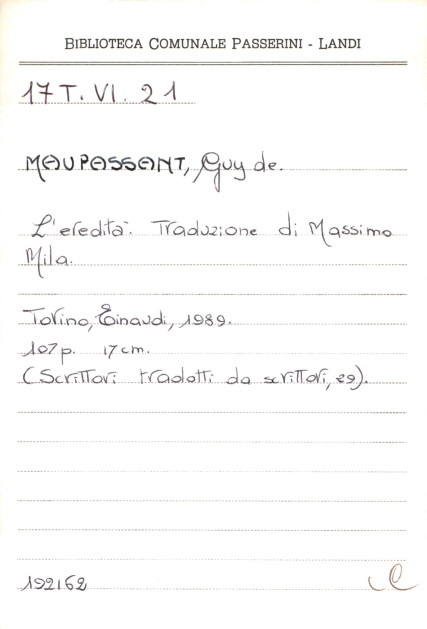 BIBLIOTECA COMUNALE PASSERINI - LANDI
17 T. VI. 21
MAUPASSANT, Guy de.
L'eredità. Traduzione di Massimo
Mila.
Torino, Einaudi, 1989.
107 p. 17 cm.
(Scrittori tradotti da scrittori, 29).
192162